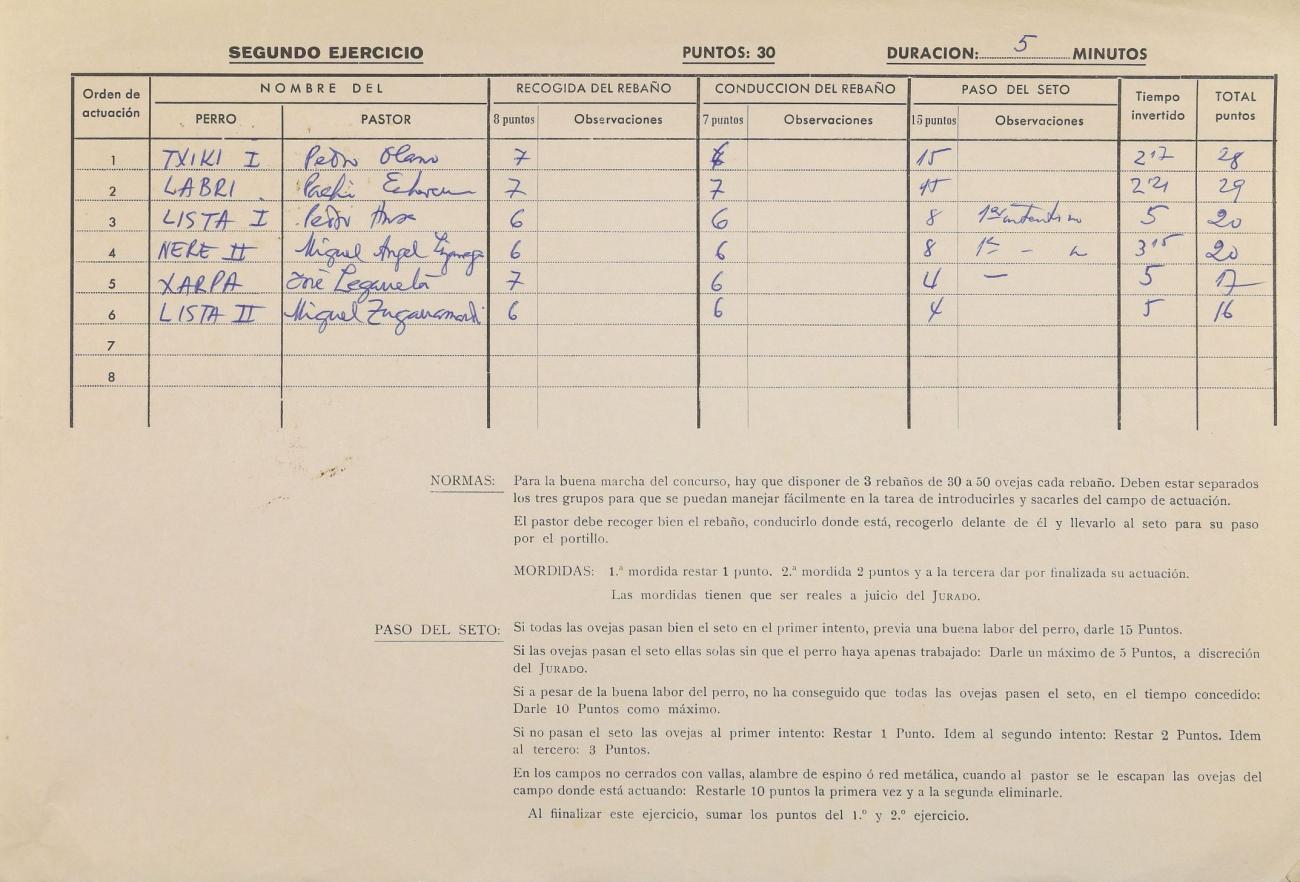 SEGUNDO EJERCICIO PUNTOS: 30 DURACION: 5 MINUTOS
Orden de actuación NOMBRE DEL RECOGIDA DEL REBAÑO CONDUCCION DEL REBAÑO PASO DEL SETO Tiempo invertido TOTAL puntos
PERRO PASTOR 8 puntos Observaciones 7 puntos Observaciones 15 puntos Observaciones
1 TXIKI I Pedro Olano 7 6 15 2'17 28
2 LABRI Pachi 7 7 15 2'21 29
3 LISTA I Pedro 6 6 8 1er intento no 5 20
4 NERE II Miguel Angel 6 6 8 1er - 3'15 20
5 XARPA José Legarreta 7 6 4 — 5 17
6 LISTA II Miguel 6 6 4 5 16
7
8
NORMAS: Para la buena marcha del concurso, hay que disponer de 3 rebaños de 30 a 50 ovejas cada rebaño. Deben estar separados
los tres grupos para que se puedan manejar fácilmente en la tarea de introducirles y sacarles del campo de actuación.
El pastor debe recoger bien el rebaño, conducirlo donde está, recogerlo delante de él y llevarlo al seto para su paso
por el portillo.
MORDIDAS: 1.ª mordida restar 1 punto. 2.ª mordida 2 puntos y a la tercera dar por finalizada su actuación.
Las mordidas tienen que ser reales a juicio del JURADO.
PASO DEL SETO: Si todas las ovejas pasan bien el seto en el primer intento, previa una buena labor del perro, darle 15 Puntos.
Si las ovejas pasan el seto ellas solas sin que el perro haya apenas trabajado: Darle un máximo de 5 Puntos, a discreción
del JURADO.
Si a pesar de la buena labor del perro, no ha conseguido que todas las ovejas pasen el seto, en el tiempo concedido:
Darle 10 Puntos como máximo.
Si no pasan el seto las ovejas al primer intento: Restar 1 Punto. Idem al segundo intento: Restar 2 Puntos. Idem
al tercero: 3 Puntos.
En los campos no cerrados con vallas, alambre de espino ó red metálica, cuando al pastor se le escapan las ovejas del
campo donde está actuando: Restarle 10 puntos la primera vez y a la segunda eliminarle.
Al fiinalizar este ejercicio, sumar los puntos del 1.º y 2.º ejercicio.